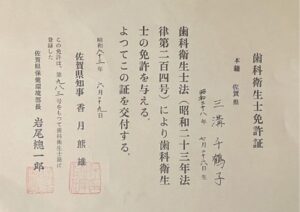 歯科衛生士免許証
本籍 佐賀県
三溝千鶴子
昭和三十八年 七月二十八日生
歯科衛生士法(昭和二十三年法
律第二百四号)により歯科衛生
士の免許を与える。
よつてこの証を交付する。
昭和六十三年 六月二十九日
佐賀県知事 香月熊雄
この免許は、第九八三号をもつて歯科衛生士籍に
登録した
佐賀県保健環境部長 岩尾總一郎